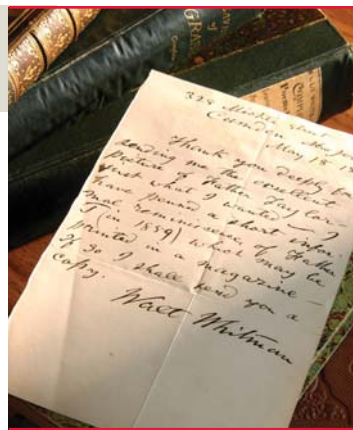 of
GRASS
328 Mickle street
Camden New Jersey
May 18
Thank you deeply for
sending me the excellent
picture of Father Taylor—
just what I wanted—I
have penn'd a short infor-
mal reminiscence of Father
T (in 1859) whch may be
printed in a magazine—
If so I shall send you a
copy.
Walt Whitman